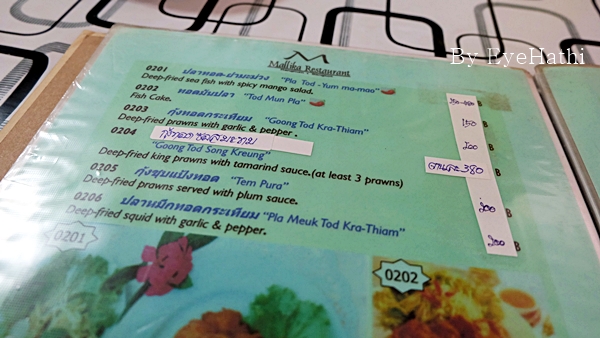 By EyeHathi
Mallika Restaurant
0201 ปลาทอด-ยำมะม่วง "Pla Tod -Yum ma-mao"
Deep-fried sea fish with spicy mango salad.
0202 ทอดมันปลา "Tod Mun Pla"
Fish Cake. 150 B
0203 กุ้งทอดกระเทียม "Goong Tod Kra-Thiam"
Deep-fried prawns with garlic & pepper. 200 B
0204
"Goong Tod Song Kreung"
Deep-fried king prawns with tamarind sauce.(at least 3 prawns) 380
0205 กุ้งชุบแป้งทอด "Tem Pura"
Deep-fried prawns served with plum sauce. 200 B
0206 ปลาหมึกทอดกระเทียม "Pla Meuk Tod Kra-Thiam"
Deep-fried squid with garlic & pepper. 200 B
0201
0202